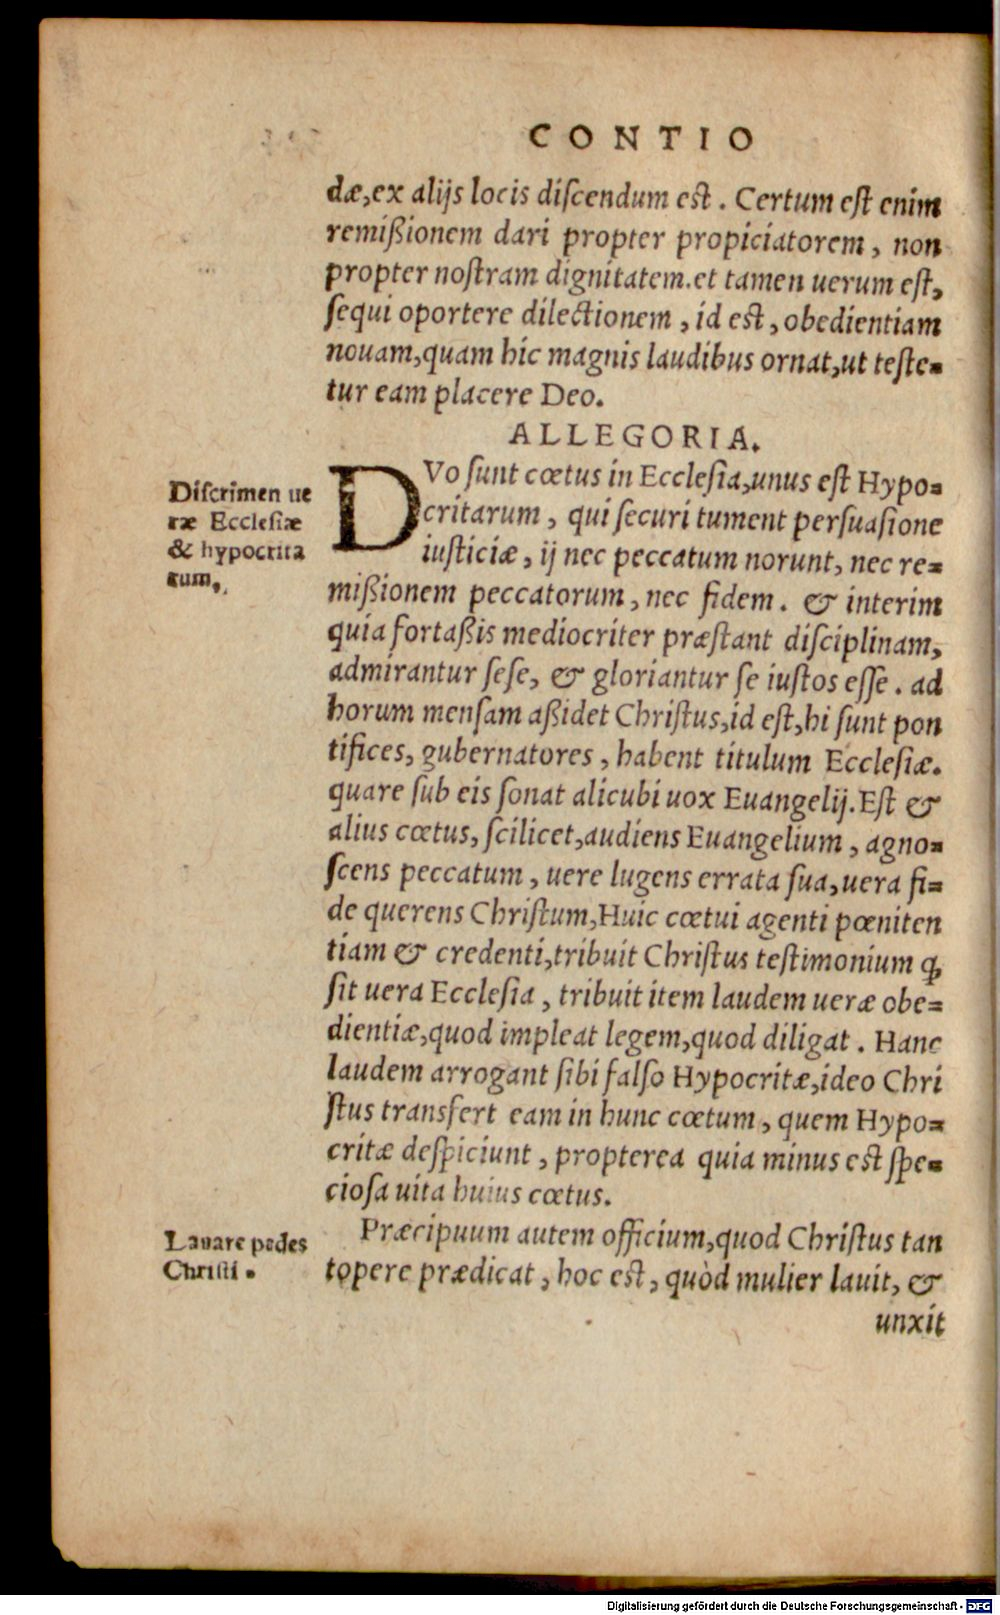 CONTIO
dæ,ex alijs locis discendum est. Certum est enim
remißionem dari propter propiciatorem, non
propter nostram dignitatem.et tamen uerum est,
sequi oportere dilectionem, id est, obedientiam
nouam,quam hic magnis laudibus ornat,ut teste-
tur eam placere Deo.
ALLEGORIA.
Discrimen ue
ræ Ecclesiæ
& hypocrita
rum.
DVo sunt cœtus in Ecclesia,unus est Hypo-
critarum, qui securi tument persuasione
iusticiæ, ij nec peccatum norunt, nec re-
mißionem peccatorum, nec fidem. & interim
quia fortaßis mediocriter præstant disciplinam,
admirantur sese, & gloriantur se iustos esse. ad
horum mensam aßidet Christus,id est,hi sunt pon
tifices, gubernatores, habent titulum Ecclesiæ.
quare sub eis sonat alicubi uox Euangelij.Est &
alius cœtus, scilicet,audiens Euangelium, agno-
scens peccatum, uere lugens errata sua,uera fi-
de querens Christum,Huic cœtui agenti pœniten
tiam & credenti,tribuit Christus testimonium ꝙ
sit uera Ecclesia, tribuit item laudem ueræ obe-
dientiæ,quod impleat legem,quod diligat. Hanc
laudem arrogant sibi falso Hypocritæ,ideo Chri
stus transfert eam in hunc cœtum, quem Hypo-
critæ despiciunt, propterea quia minus est spe-
ciosa uita huius cœtus.
Lauare pedes
Christi.
Præcipuum autem officium,quod Christus tan
topere prædicat, hoc est, quòd mulier lauit, &
unxit
Digitalisierung gefördert durch die Deutsche Forschungsgemeinschaft - DFG